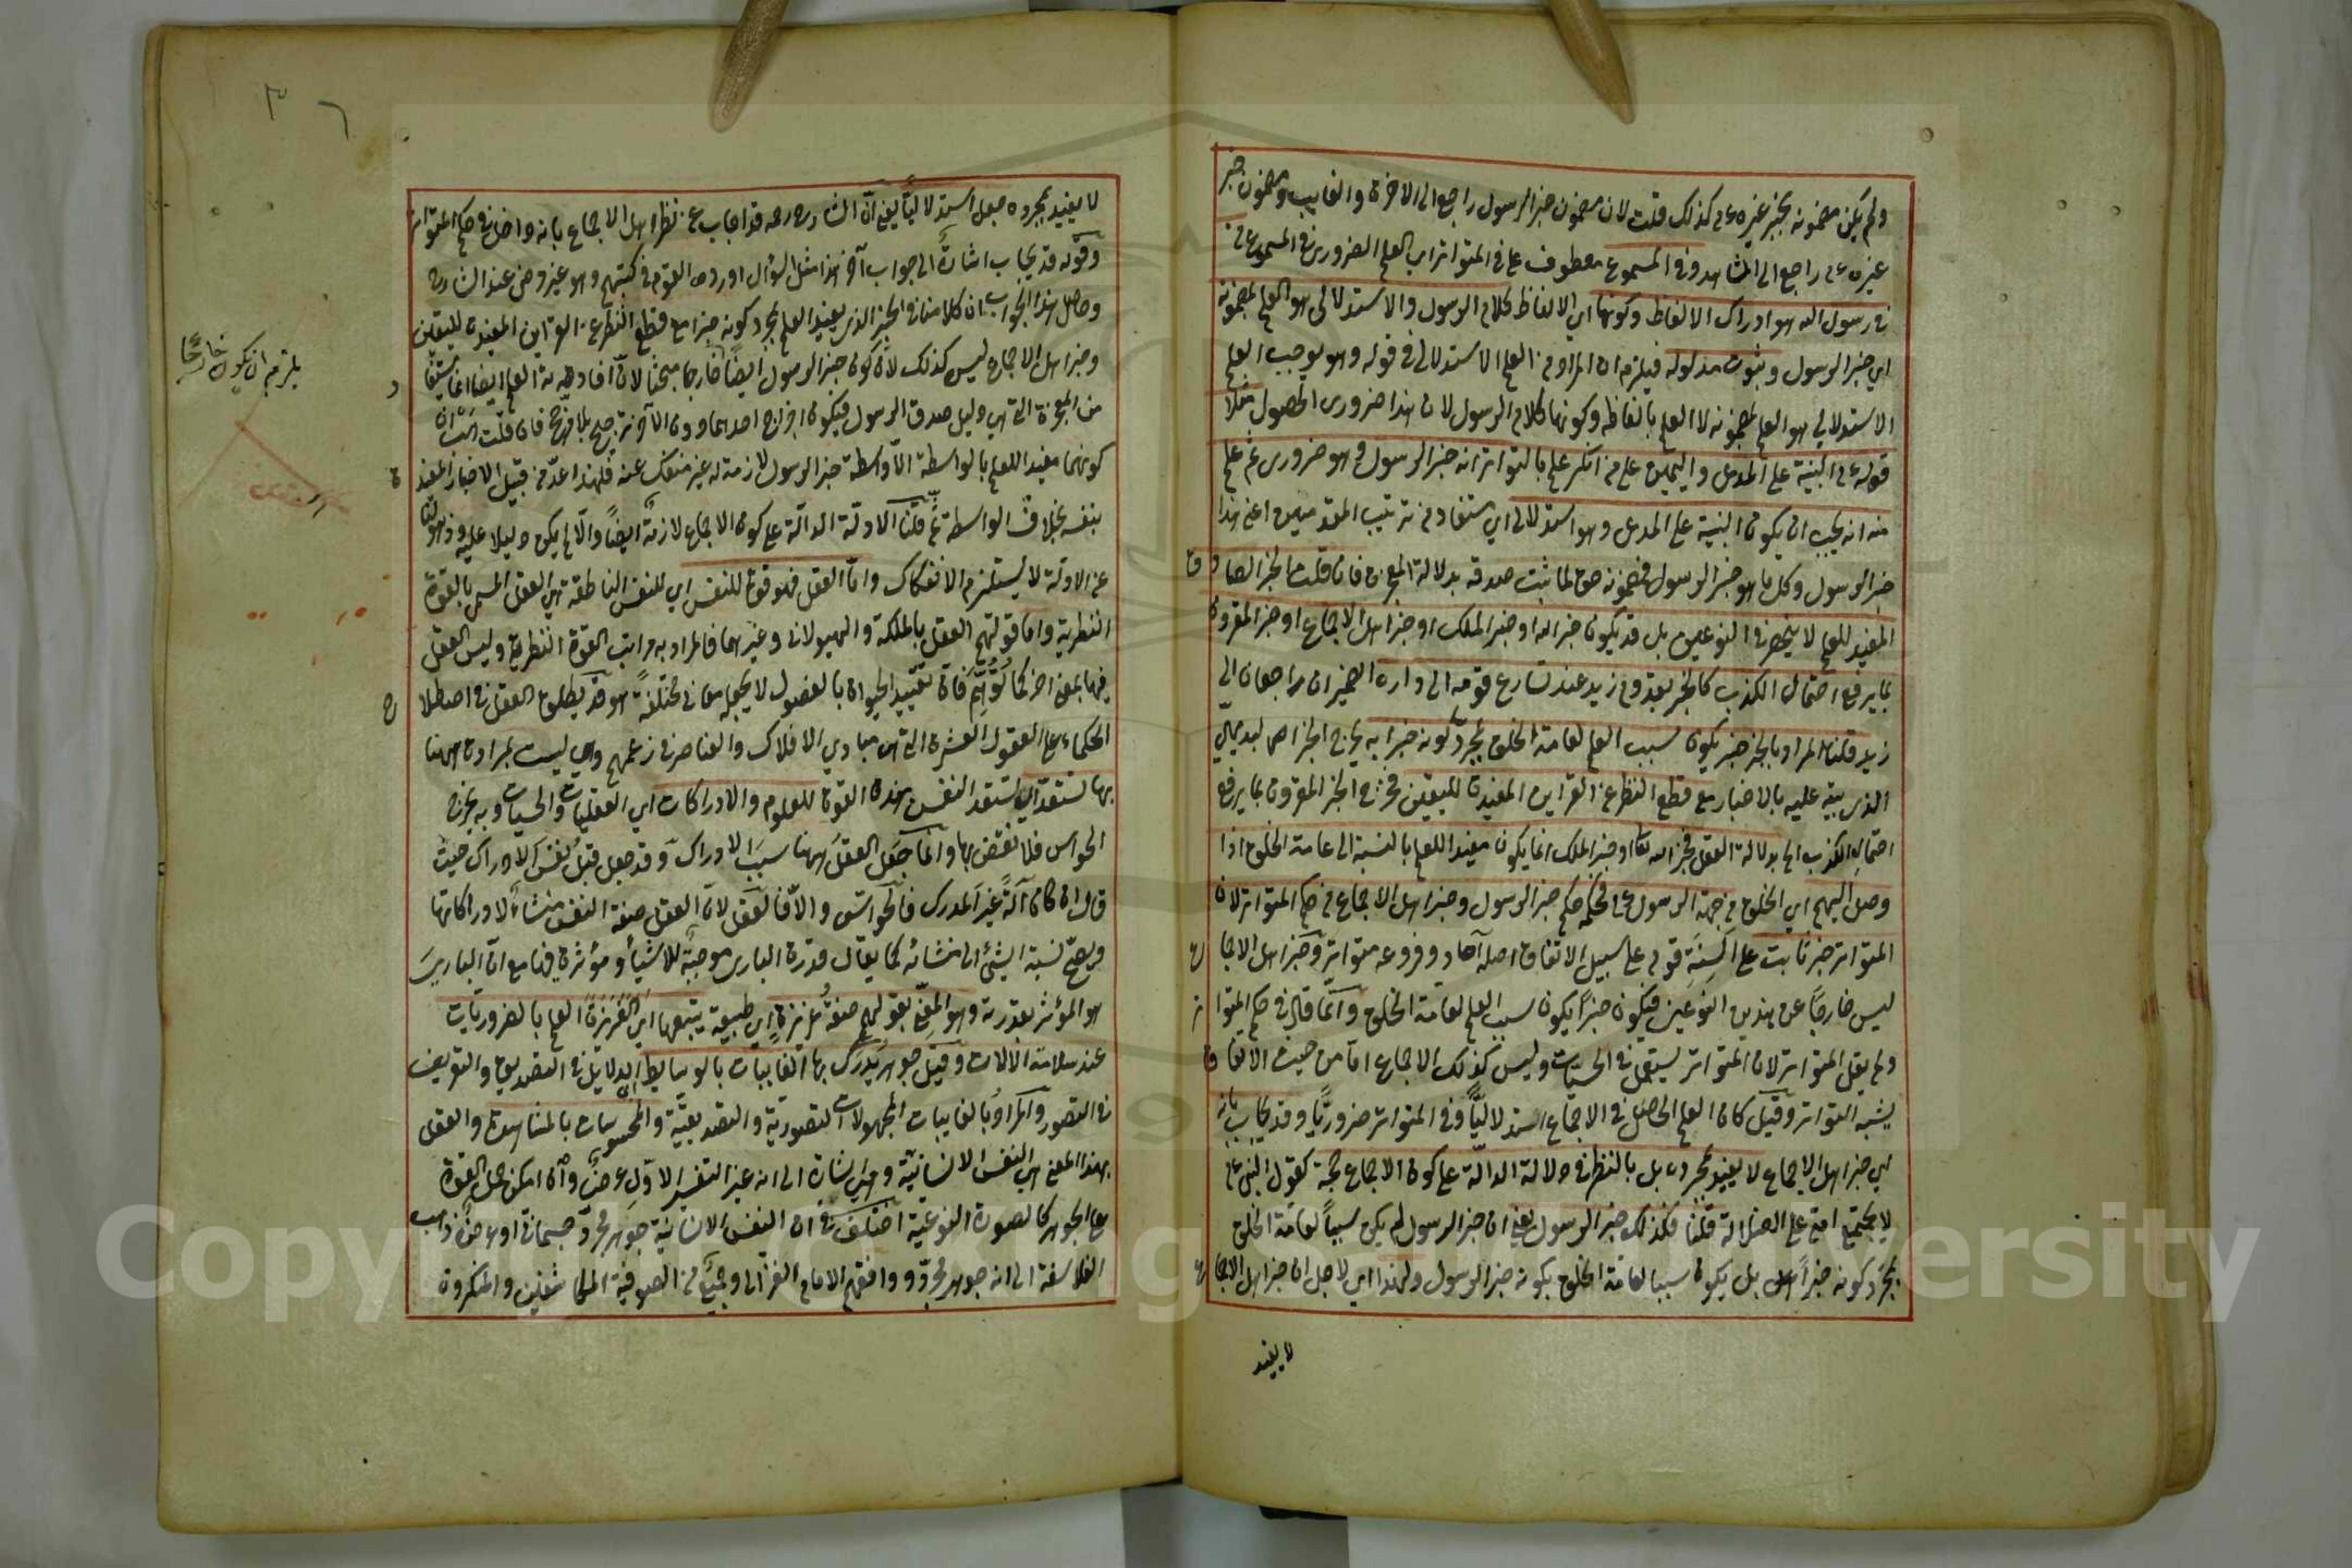 ولم يكن مضمونه بخبر غيره عم كذلك قلت لان مضمون خبر الرسول راجع الى الاخرة والغايب ومضمون خبر
غيره عم راجع الى المشاهد وفي المسموع معطوف على في المتواتر اي العلم الضروري في المسموع من
في رسول الله هو ادراك الالفاظ وكونها اي الالفاظ كلام الرسول والاستدلالي هو العلم بمضمونه
اي خبر الرسول وثبوت مدلوله فيلزم ان المراد من العلم الاستدلالي في قوله وهو يوجب العلم
الاستدلالي هو العلم بمضمونه لا العلم بالفاظه وكونها كلام الرسول لان هذا ضروري الحصول مثلا
قوله عم البينة على المدعي واليمين على من انكر علم بالتواتر انه خبر الرسول وهو ضروري ثم علم
منه انه يجب ان يكون البينة على المدعي وهو استدلالي اي مستفاد من ترتيب المقدمتين اعني هذا
خبر الرسول وكل ما هو خبر الرسول فمضمونه حق لما ثبت صدقه بدلالة المعجزة فان قلت الخبر الصادق
المفيد للعلم لا ينحصر في النوعين بل قد يكون خبر الله او خبر الملك او خبر اهل الاجماع او خبر المقرون
بما يرفع احتمال الكذب كالخبر بقدوم زيد عند تسارع قومه الى داره الضميران راجعان الى
زيد قلنا المراد بالخبر خبر يكون سبب العلم لعامة الخلق بمجرد كونه خبرا به يخرج الخبر
الذي عليه بالاخبار مع قطع النظر عن القراين المفيدة لليقين فخرج الخبر المقرون بما يرفع
احتمال الكذب الى بدلالة العقل فخبر الله تعا او خبر الملك انما يكون مفيدا للعلم بالنسبة الى عامة الخلق اذا
وصل اليهم اي الخلق من جهة الرسول عم فحكمه حكم خبر الرسول وخبر اهل الاجماع في حكم المتواتر لان
المتواتر خبر ثابت على السنة قوم على سبيل الاتفاق اصله آحاد وفروعه متواتر وخبر اهل الاجماع
ليس خارجا عن هذين النوعين فيكون خبرا يكون سبب العلم لعامة الخلق وانما قال في حكم المتواتر
ولم يقل المتواتر لان المتواتر يستعمل في الحسيات وليس كذلك الاجماع اما من حيث الاتفاق
يشبه التواتر وقيل كان العلم الحاصل في الاجماع استدلاليا وفي المتواتر ضروريا وقد يجاب بانه
اي خبر اهل الاجماع لا يفيد بمجرده بل بالنظر في دلالة الدالة على كون الاجماع حجة كقول النبي عم
لا يجتمع امتي على الضلالة قلنا فكذلك خبر الرسول يعني ان خبر الرسول لم يكن سببا لعامة الخلق
بمجرد كونه خبرا بل يكون سببا لعامة الخلق بكونه خبر الرسول ولهذا اي لاجل ان خبر اهل الاجماع
لا يفيد
لا يفيد بمجرده جعل استدلاليا يعني ان الشارح رحمه قد اجاب عن نظر اهل الاجماع بانه داخل في حكم المتواتر
وقوله قد يجاب اشارة الى جواب آخر هذا مثل السؤال اورده القوم في كتبهم وهو غير مرضي عند الشارح
وحاصل هذا الجواب ان كلامنا في الخبر الذي يفيد العلم بمجرد كونه خبرا مع قطع النظر عن القراين المفيدة لليقين
وخبر اهل الاجماع ليس كذلك لان كون خبر الرسول ايضا خارجا مبحثا لان افادته العلم ايضا انما
من المعجزة التي هي دليل صدق الرسول فيكون اخراج احدهما دون الآخر ترجيح بلا مرجح فان قلت
كونهما مفيدا للعلم بالواسطة الا واسطة خبر الرسول لازمة له غير منفك عنه فلهذا عد من قبيل الاخبار المفيد
بنفسه بخلاف الواسطة ثم قلنا الادلة الدالة على كون الاجماع لازمة ايضا والا لم يكن دليلا عليه
عن الادلة لا يستلزم الانفكاك واما العقل فهو قوة للنفس اي للنفس الناطقة هي العقل المسمى بالقوة
النظرية واما قولهم العقل بالملكة والهيولاني وغيرهما فالمراد به مراتب القوة النظرية وليس العقل
فيها بمعنى اخر كما توهم فان تقييد الحيوان بالفصول لا يجعله معاني مختلفة وقد يطلق العقل في اصطلاح
الحكماء على العقول العشرة التي هي مبادي الافلاك والعناصر في زعمهم وهي ليست بمرادة ههنا
بها تستعد اي تستعد النفس بهذه القوة للعلوم والادراكات اي العقليات والحسيات وبه يخرج
الحواس فلا نقض بها وانما جعل العقل ههنا سبب الادراك وقد جعل قبل نفس الادراك حيث
قال ان كان آلة غير المدرك فالحواس والا فالعقل لان العقل صفة النفس منشاء لادراكاتها
ويصح نسبة الشئ الى منشائه كما يقال قدرة الباري موجبة للاشياء ومؤثرة فيها مع ان الباري
هو المؤثر بقدرته وهو المعني بقولهم صفة غريزة اي طبيعية يتبعها اي الغريزة العلم بالضروريات
عند سلامة الآلات وقيل جوهر يدرك بها الغايبات بالوسايط اي الدلايل في التصديق والتعريف
في التصور والمراد بالغايبات المجهولات التصورية والتصديقية والمحسوسات بالمشاهدة والعقل
بهذا المعنى هي النفس الانسانية وفيه اشارة الى انه غير التفسير الاول عرض وان امكن حمل القوة
على الجوهر كالصورة النوعية اختلف في ان النفس الانسانية جوهر مجرد جسماني او عرض ذهب
الفلاسفة الى انه جوهر مجرد ووافقهم الامام الغزالي وجمع من الصوفية المكاشفين والمنكرون
يلزم ان يكون خارجا
Copyright © King Saud University